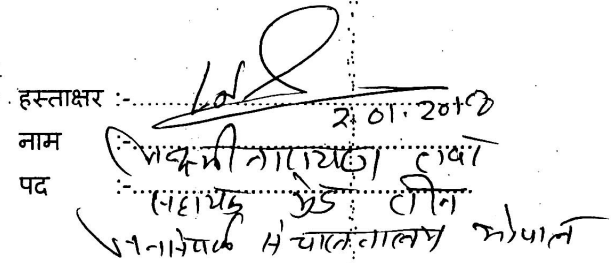 हस्ताक्षर :-
2.01.2018
नाम :- लक्ष्मी नारायण
पद :- सहायक ग्रेड तीन
संचालनालय भोपाल